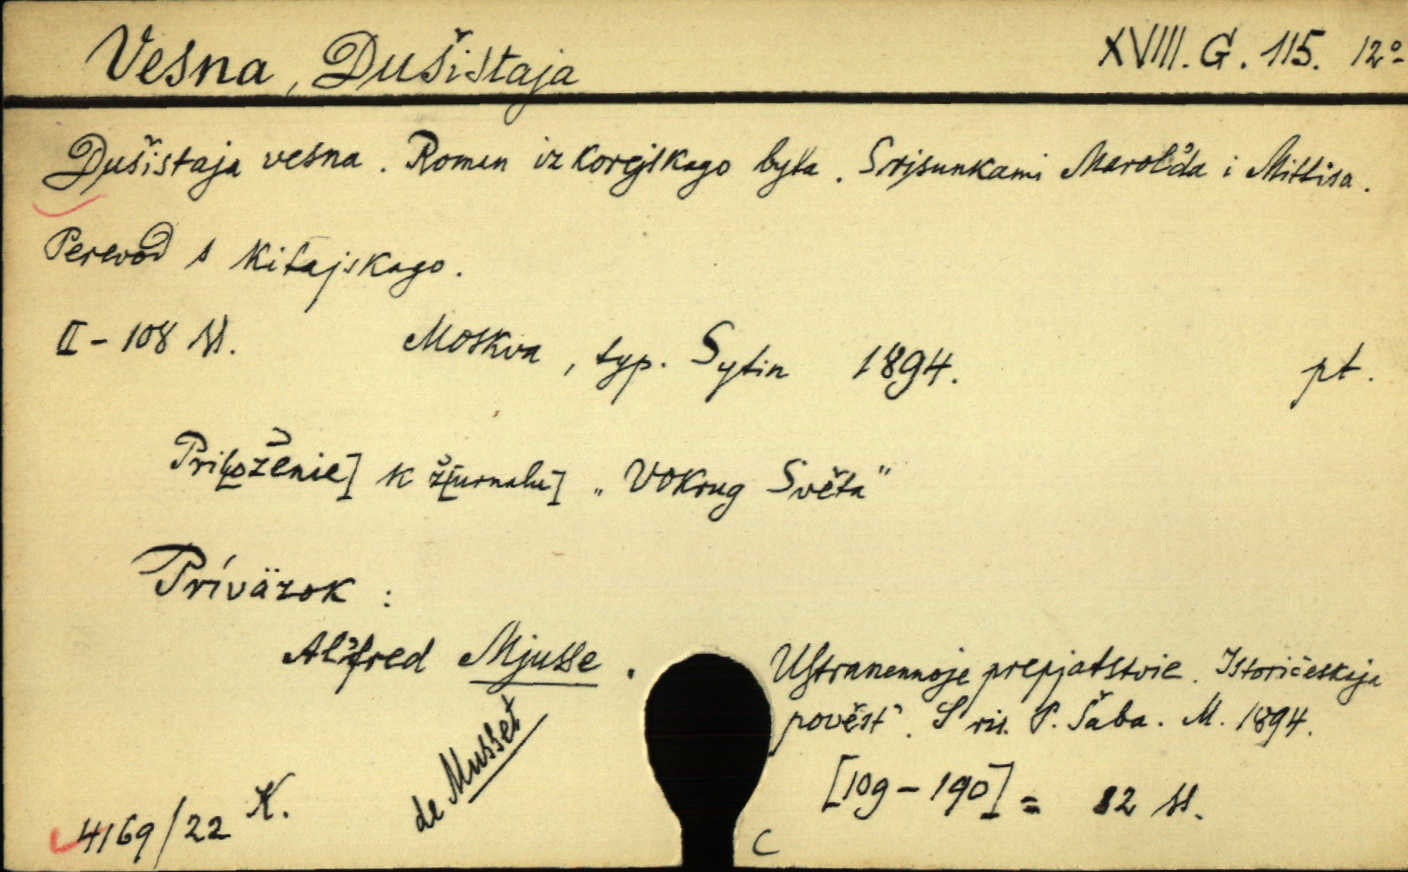 Vesna, Dušistaja XVIII. G. 115. 12°
Dušistaja vesna. Roman iz korejskago byta. S risunkami Marol'da i Mittisa.
Perevod s kitajskago.
II - 108 ss. Moskva, typ. Sytin 1894. pt.
Pril[oženie] k ž[urnalu] „Vokrug Světa"
Prívӓzok :
Al'fred Mjusse. Ustranennoje prepjatstvie. Istoričeskaja
pověst'. S ris. P. Šaba. M. 1894.
de Musset
[109-190] = 82 ss.
4169/22 K.
C